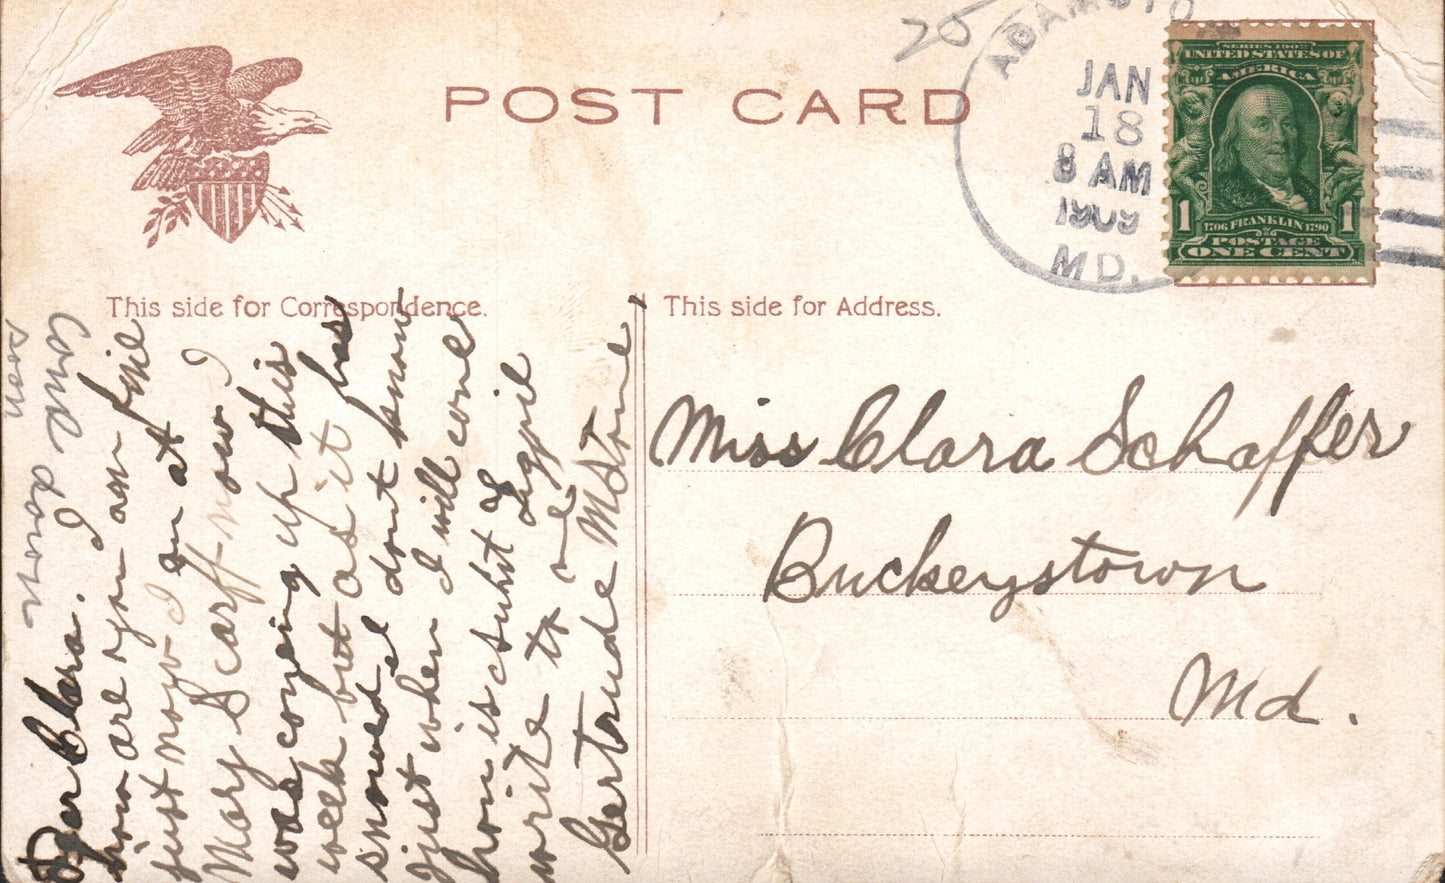 POST CARD
20
ADAMSTO
JAN
18
8 AM
1909
MD.
SERIES 1902
UNITED STATES OF
AMERICA
1 1706 FRANKLIN 1790 1
POSTAGE
ONE CENT
This side for Correspondence.
Come down
soon
Dear Clara.
how are you I am fine
just now I am at
Mary Scarff now I
was coming up this
week but as it has
snowed I dont know
just when I will come
how is
write to me
Gertrude M Stone
This side for Address.
Miss Clara Schaffer
Buckeystown
Md.